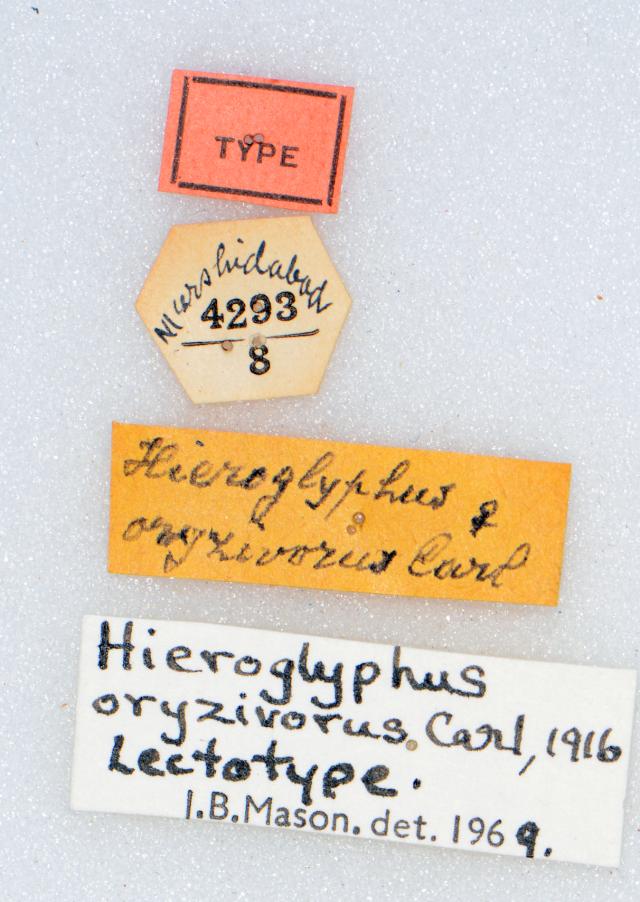 TYPE
Murshidabad
4293
8
Hieroglyphus ♀
oryzivorus Carl
Hieroglyphus
oryzivorus. Carl, 1916
Lectotype.
J.B.Mason. det. 1969.